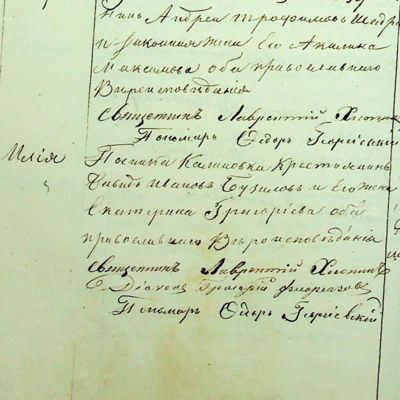 нинъ Андрей Трофимовъ Шевра
и законная жена его Акилина
Максимова оба православнаго
Вероисповѣдания
Священникъ Лаврентій
Пономарь Ѳедоръ Георгіевскій
Илія
Поселка Калиновка Крестьянинъ
Давидъ Ивановъ Бузиловъ и его жена
Екатерина Григоріева оба
православнаго Вѣроисповѣданія
Священникъ Лаврентій
Діаконъ Григорій
Пономарь Ѳедоръ Георгіевскій